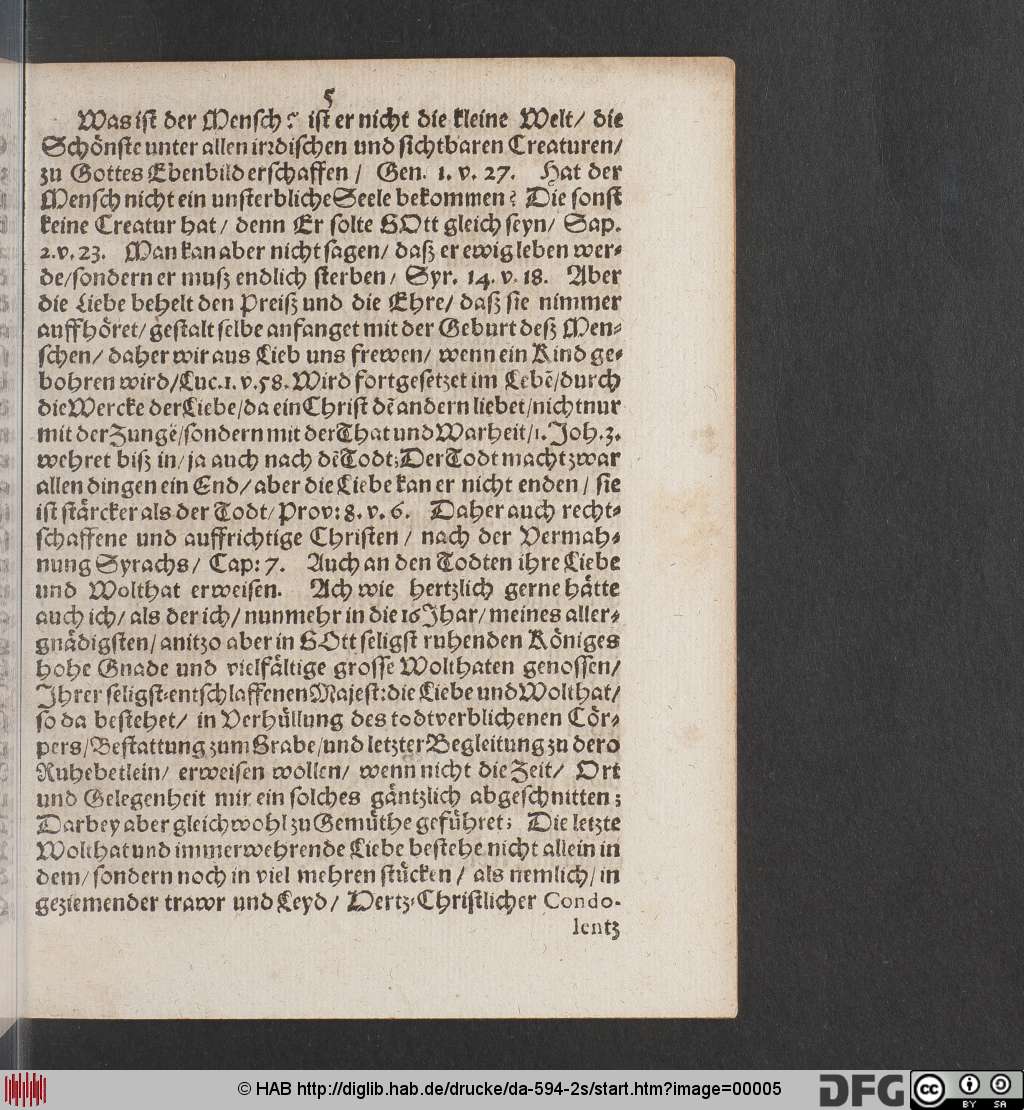 5
Was ist der Mensch? ist er nicht die kleine Welt/ die
Schönste unter allen irꝛdischen und sichtbaren Creaturen/
zu Gottes Ebenbild erschaffen / Gen. 1. v. 27. Hat der
Mensch nicht ein unsterbliche Seele bekommen? Die sonst
keine Creatur hat/ denn Er solte GOtt gleich seyn/ Sap.
2. v. 23. Man kan aber nicht sagen/ daß er ewig leben wer-
de/ sondern er muß endlich sterben/ Syr. 14. v. 18. Aber
die Liebe behelt den Preiß und die Ehre/ daß sie nimmer
auffhöret/ gestalt selbe anfanget mit der Geburt deß Men-
schen/ daher wir aus Lieb uns frewen/ wenn ein Kind ge-
bohren wird/ Luc. 1. v. 58. Wird fortgesetzet im Lebē/ durch
die Wercke der Liebe/ da ein Christ dē andern liebet/ nicht nur
mit der Zungē/ sondern mit der That und Warheit/ 1. Joh. 3.
wehret biß in/ ja auch nach dē Todt; Der Todt macht zwar
allen dingen ein End/ aber die Liebe kan er nicht enden/ sie
ist stärcker als der Todt/ Prov: 8. v. 6. Daher auch recht-
schaffene und auffrichtige Christen / nach der Vermah-
nung Syrachs/ Cap: 7. Auch an den Todten ihre Liebe
und Wolthat erweisen. Ach wie hertzlich gerne hätte
auch ich/ als der ich/ nunmehr in die 16 Jhar/ meines aller-
gnädigsten/ anitzo aber in GOtt seligst ruhenden Königes
hohe Gnade und vielfältige grosse Wolthaten genossen/
Jhrer seligst-entschlaffenen Majest: die Liebe und Wolthat/
so da bestehet/ in Verhüllung des todtverblichenen Cör-
pers/ Bestattung zum Grabe/ und letzter Begleitung zu dero
Ruhebetlein/ erweisen wollen/ wenn nicht die Zeit/ Ort
und Gelegenheit mir ein solches gäntzlich abgeschnitten;
Darbey aber gleichwohl zu Gemüthe geführet; Die letzte
Wolthat und immerwehrende Liebe bestehe nicht allein in
dem/ sondern noch in viel mehren stücken / als nemlich/ in
geziemender trawr und Leyd/ Hertz-Christlicher Condo-
lentz
© HAB http://diglib.hab.de/drucke/da-594-2s/start.htm?image=00005
DFG
cc
BY SA